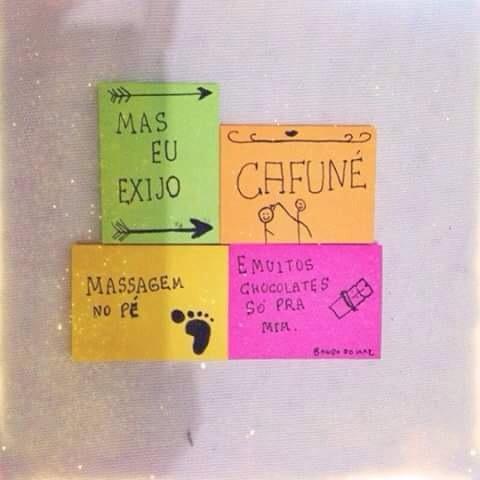 MAS
EU
EXIJO
CAFUNÉ
MASSAGEM
NO PÉ
E MUITOS
CHOCOLATES
SÓ PRA
MIM.
BANDA DO MAR